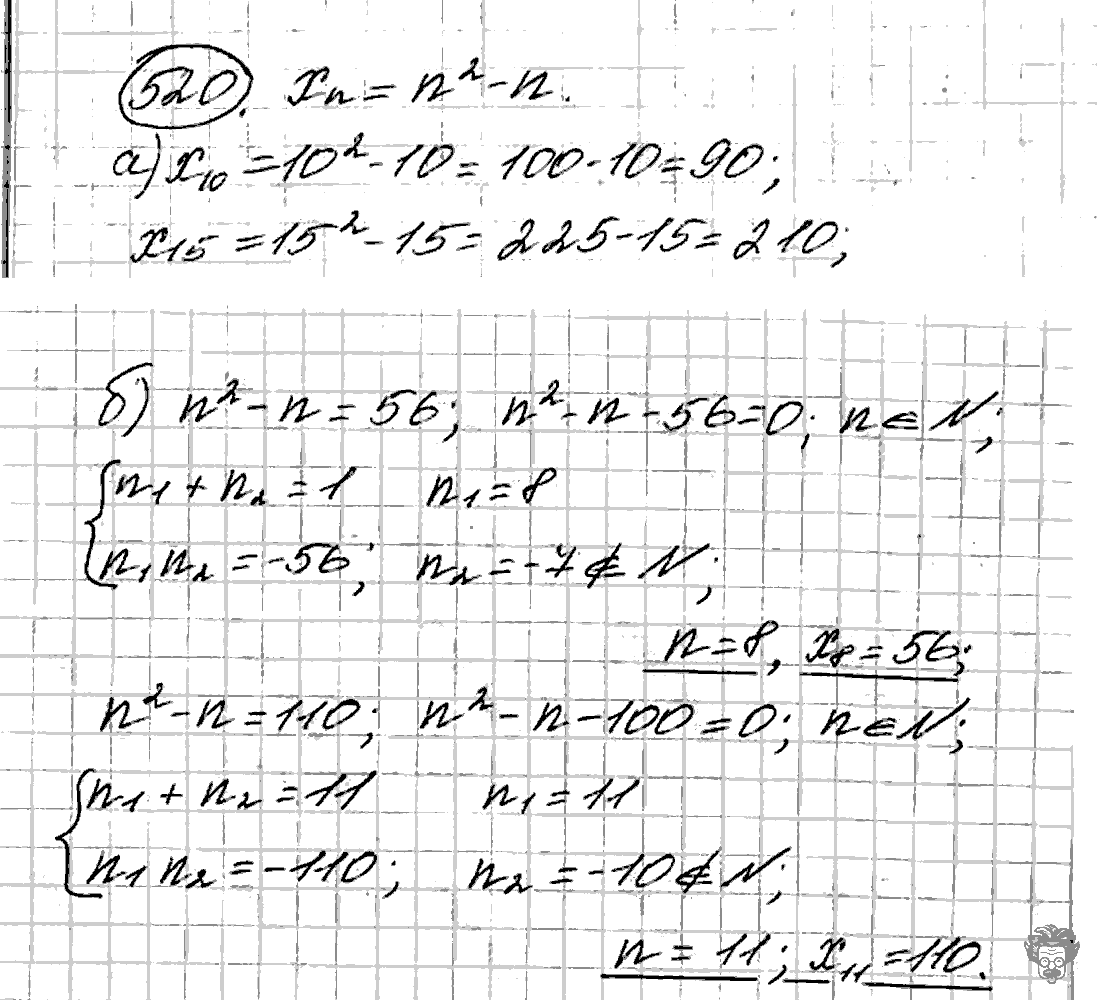 520. xₙ = n² - n.
а) x₁₀ = 10² - 10 = 100 - 10 = 90;
x₁₅ = 15² - 15 = 225 - 15 = 210;
б) n² - n = 56; n² - n - 56 = 0; n ∈ N;
{ n₁ + n₂ = 1 n₁ = 8
n₁ n₂ = -56; n₂ = -7 ∉ N;
n = 8, x₈ = 56;
n² - n = 110; n² - n - 100 = 0; n ∈ N;
{ n₁ + n₂ = 11 n₁ = 11
n₁ n₂ = -110; n₂ = -10 ∉ N;
n = 11; x₁₁ = 110.